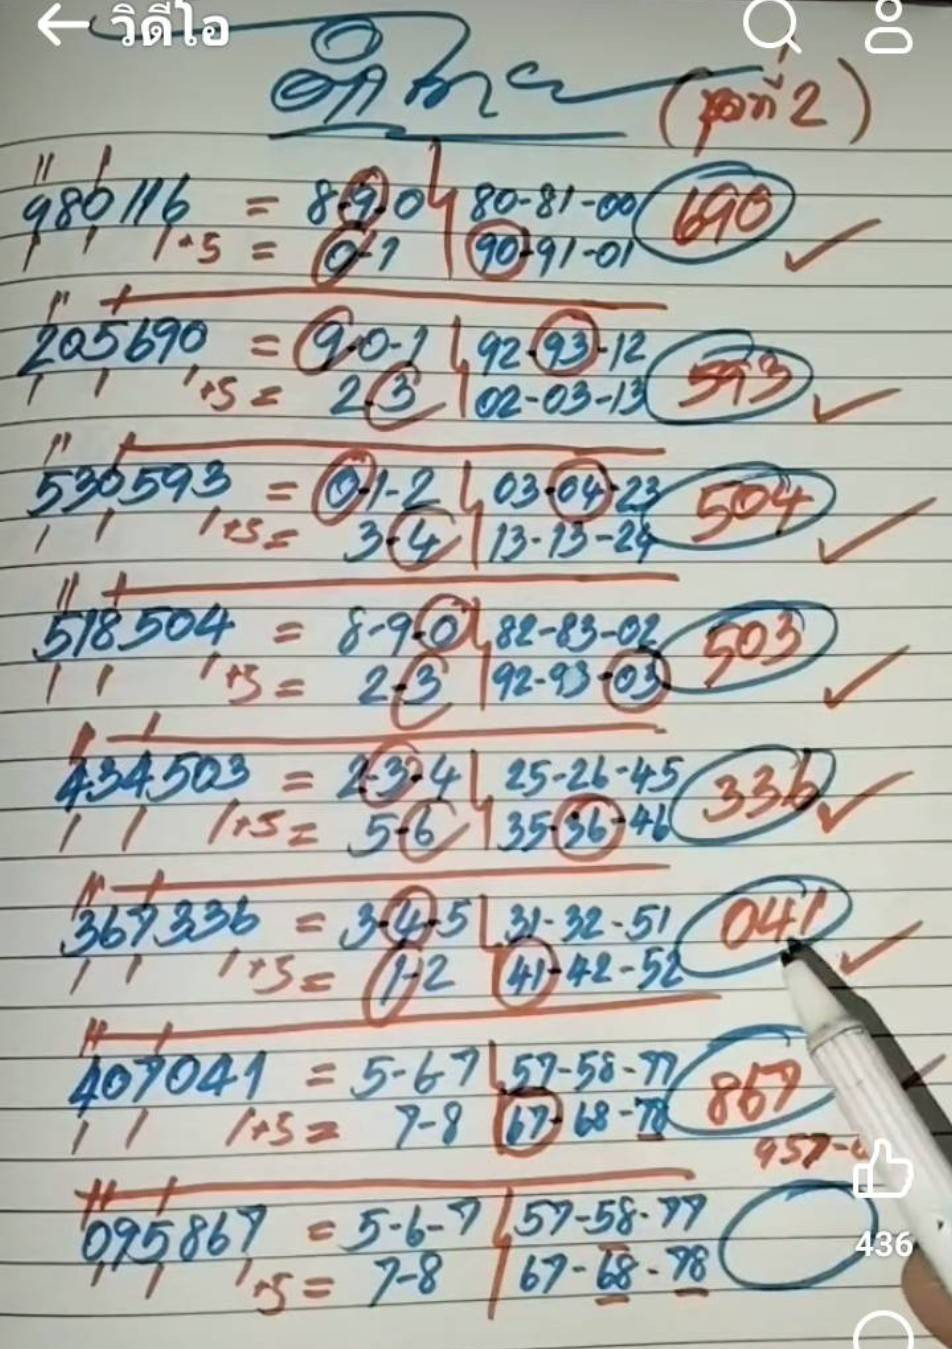 วิดีโอ
(ชุดที่ 2)
980116 = 8-9-0 80-81-00 690
+5 = 0-1 90-91-01
205690 = 9-0-1 92-93-12 593
+5 = 2-3 02-03-13
530593 = 0-1-2 03-04-23 504
+5 = 3-4 13-13-24
518504 = 8-9-0 82-83-02 503
+5 = 2-3 92-93-03
434503 = 2-3-4 25-26-45 336
+5 = 5-6 35-36-46
367336 = 3-4-5 31-32-51 041
1+5 = 1-2 41-42-52
407041 = 5-6-7 57-58-77 867
1+5 = 7-8 67-68-78
957-
095867 = 5-6-7 57-58-77
436
+5 = 7-8 67-68-78